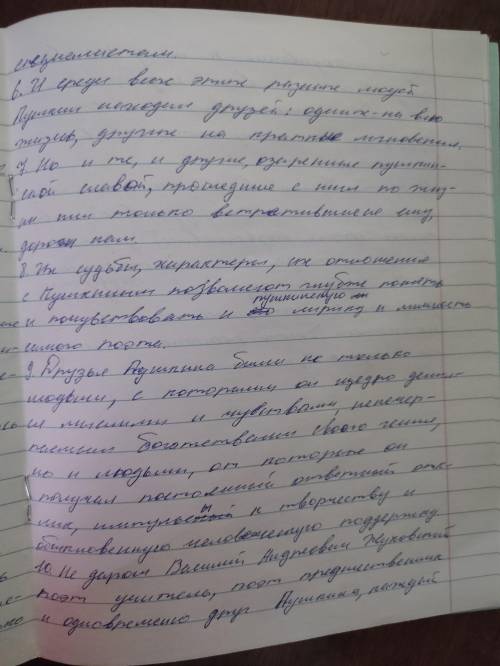 специалистам.
6. И среди всех этих разных людей
Пушкин находил друзей: одних - на всю
жизнь, других на краткие мгновения.
7 Но и те, и другие, озаренные пушкин-
ской славой, прошедшие с ним по жиз-
ни или только встретившиеся ему,
дороги нам.
8. Их судьбы, характеры, их отношения
с Пушкиным позволяют глубже понять
и почувствовать и пушкинскую лирику и личность
самого поэта.
9. Друзья Пушкина были не только
людьми, с которыми он щедро делил-
ся мыслями и чувствами, неисчер-
паемым богатством своего гения,
но и людьми, от которых он
получал постоянный ответный отк-
лик, импульсы к творчеству и
обыкновенную человеческую поддержку
10. Не даром Василий Андреевич Жуковский
поэт учитель, поэт предшественник
и одновременно друг Пушкина, каждый